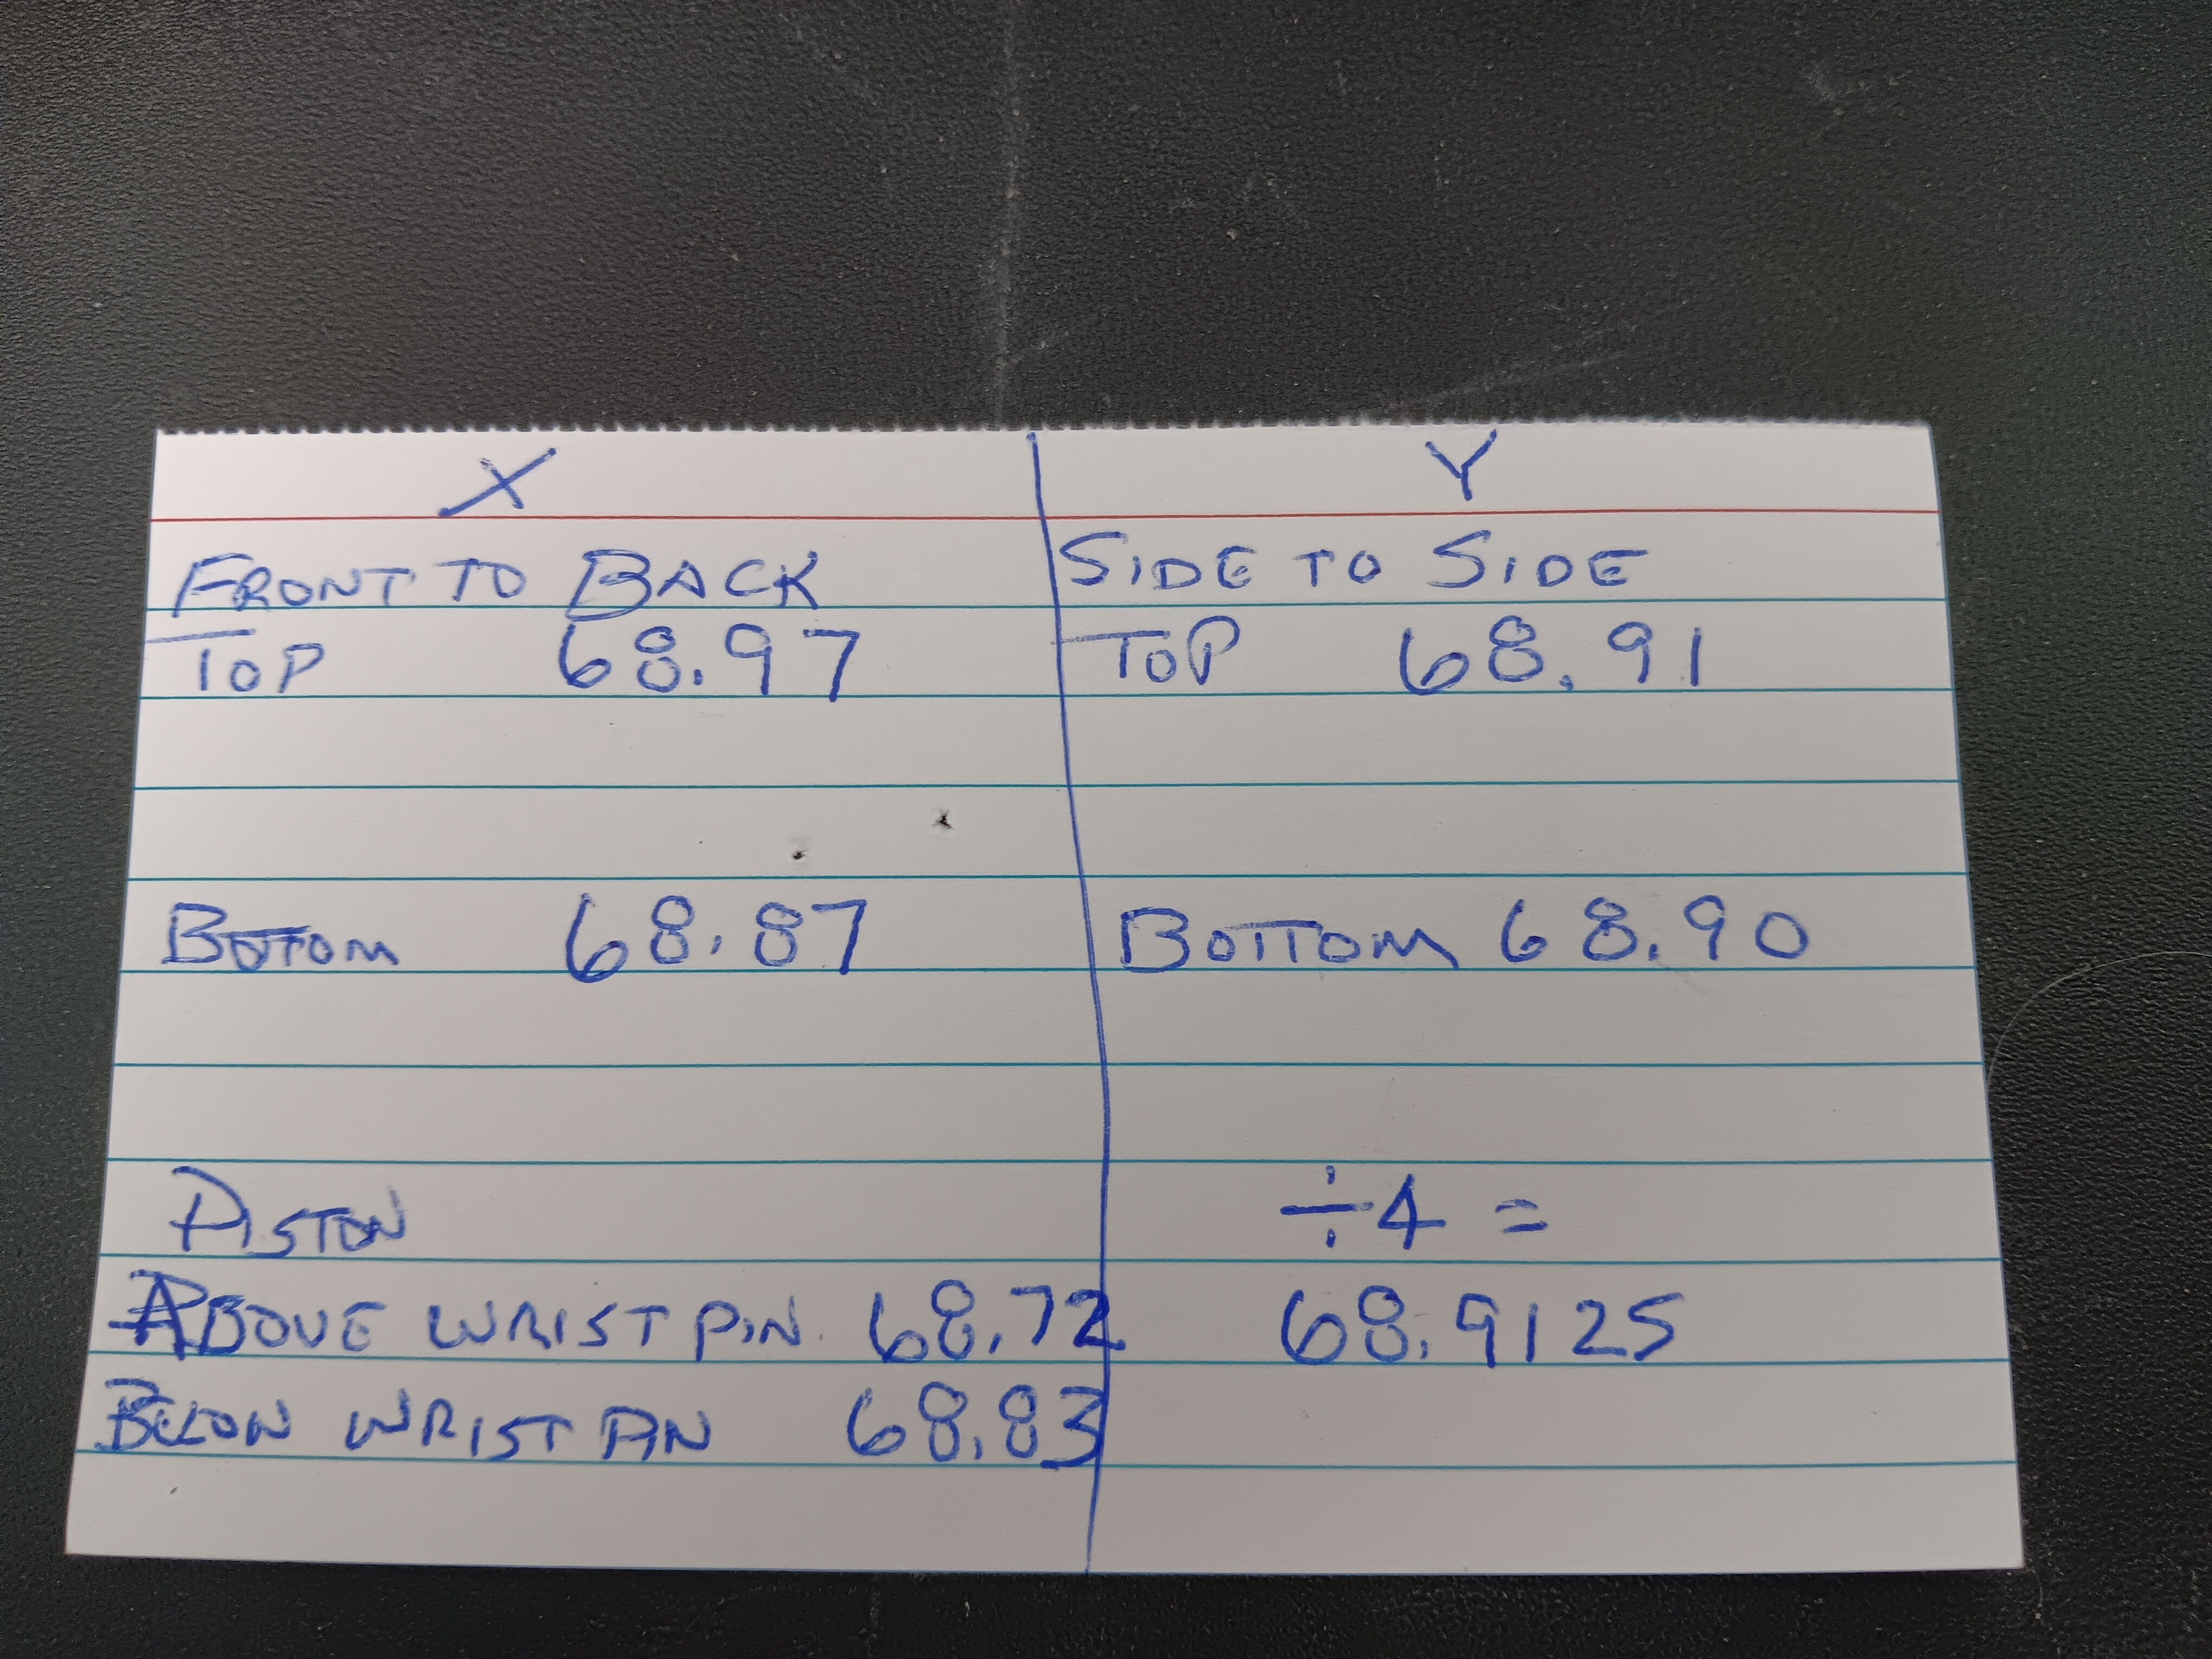 X Y
FRONT TO BACK SIDE TO SIDE
TOP 68.97 TOP 68.91
BOTTOM 68.87 BOTTOM 68.90
PISTON ÷4 =
ABOVE WRIST PIN. 68.72 68.9125
BELOW WRIST PIN 68.83